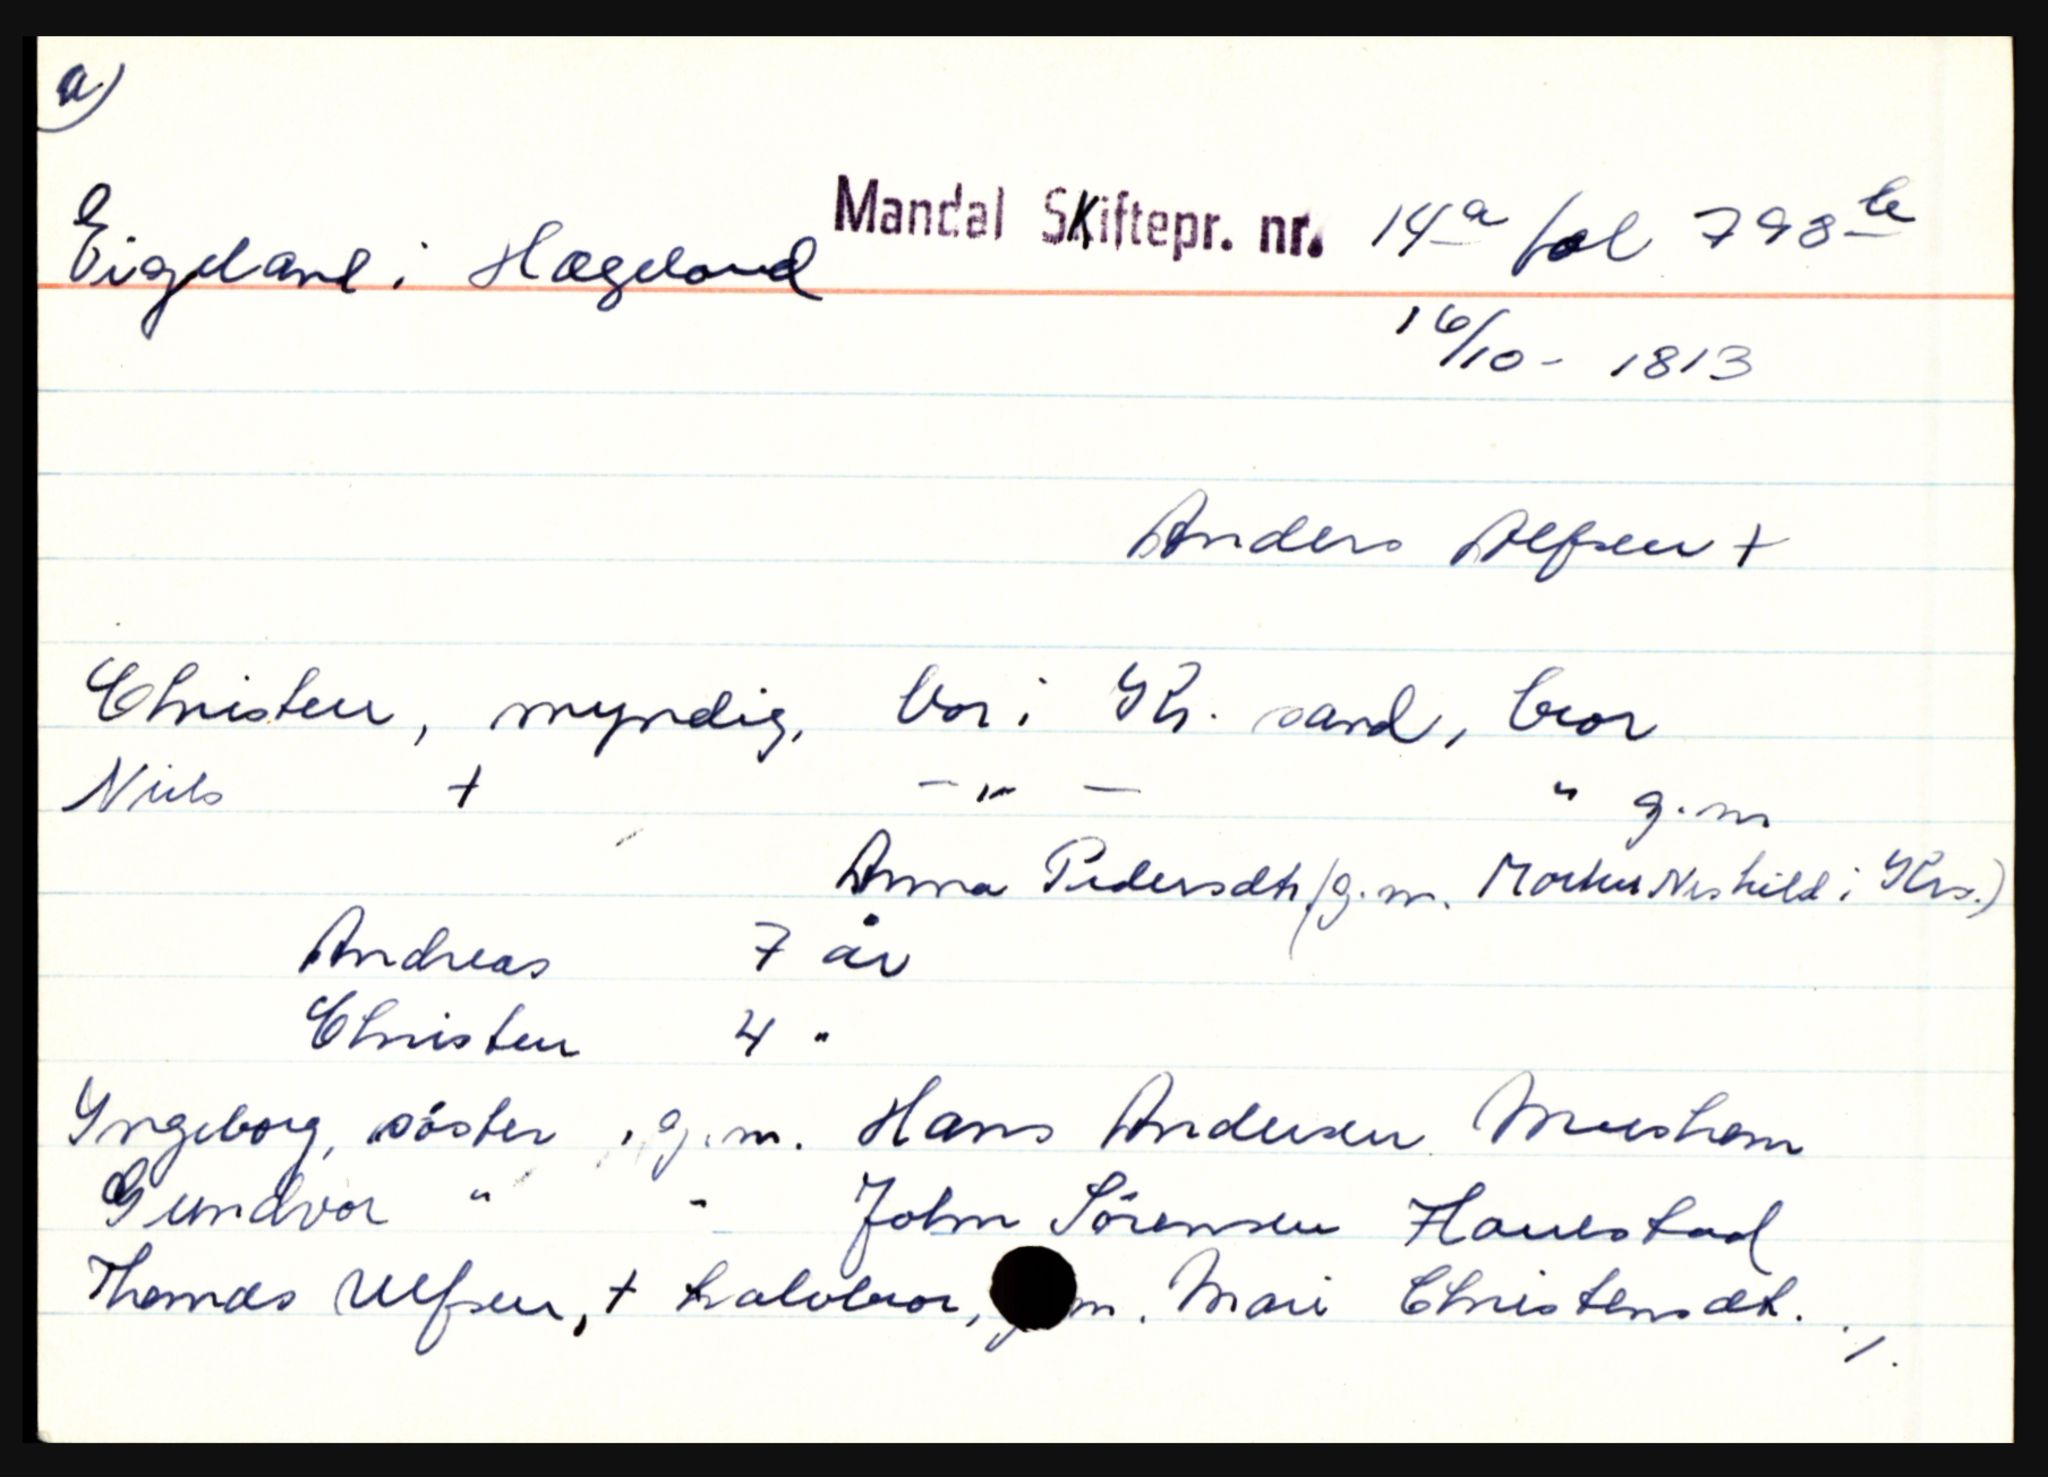 a)
Eigeland i Hægeland Mandal Skiftepr. nr. 14a fol 798b
16/10 - 1813
Anders Alfsen +
Christen, myndig, bor i Kr. sand, bror
Niels + - " - " g.m
Anna Pedersdtr (g.m. Neskild i Krs.)
Andreas 7 år
Christen 4 "
Ingeborg, søster, g.m. Hans Andersen
Gundvor " - John Sörensen Hauestad
Thomas Ulfsen, + halvbror, g.m. Mari Christensdt. ./.